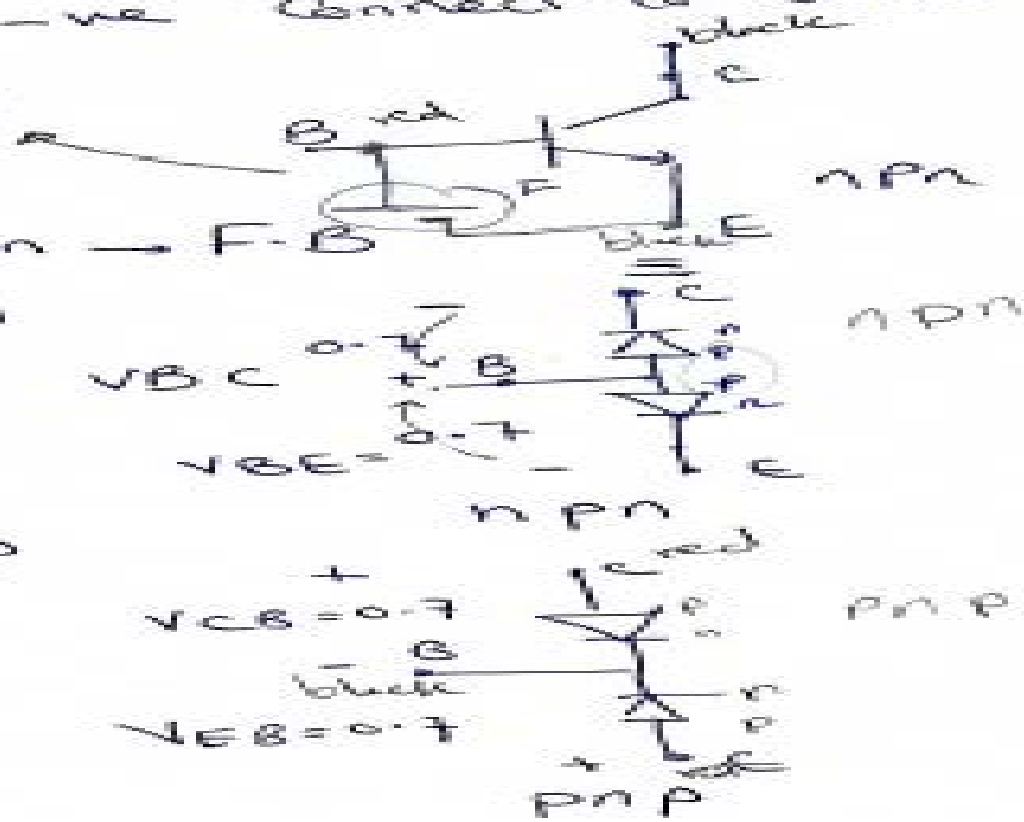 -ve connect
black
C
B red
F
npn
n → F.B
black E
C
0.7
n
npn
p
VBC
+ B
p
n
0.7
VBE =
E
npn
C red
+
VCB = 0.7
p
n
pnp
B
black
n
VEB = 0.7
p
+
pnp